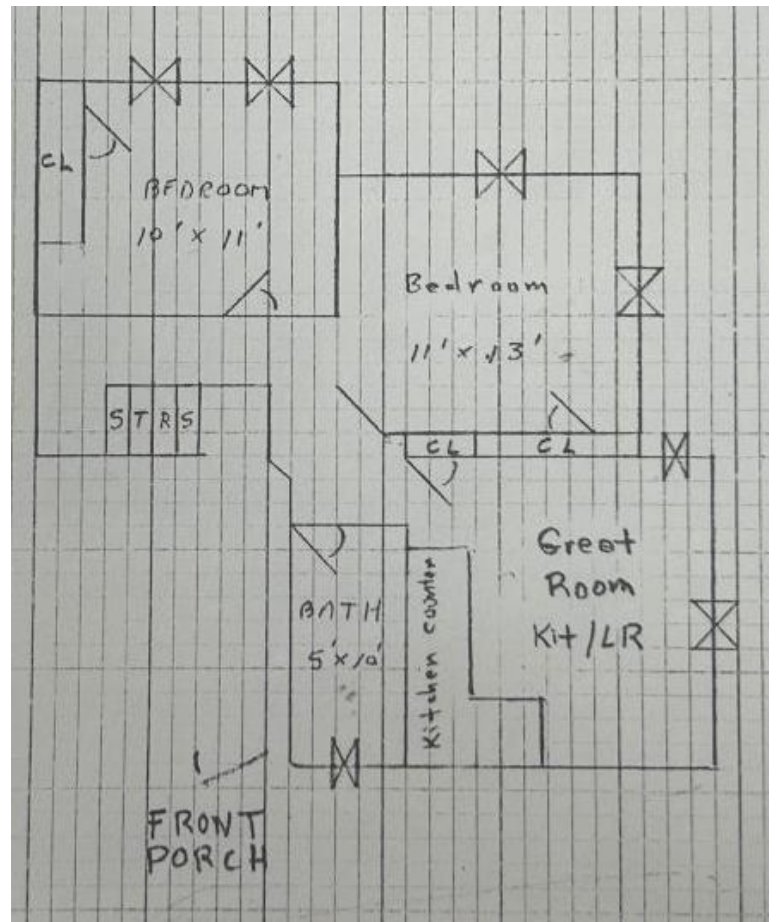 CL
BEDROOM
10' x 11'
Bedroom
11' x 13'
S T R S
CL
CL
Great
Room
Kit/LR
BATH
5' x 10'
Kitchen counter
FRONT
PORCH